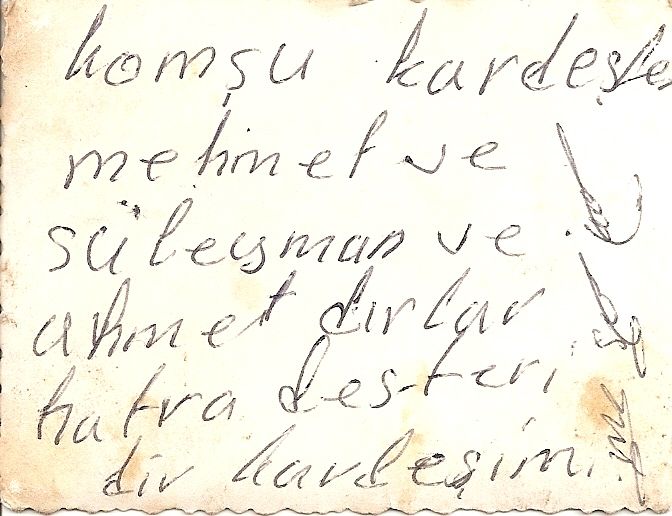 komşu kardeşle
mehmet ve
süleyman ve
ahmet dırlar
hatra desteri
dir kardeşim.